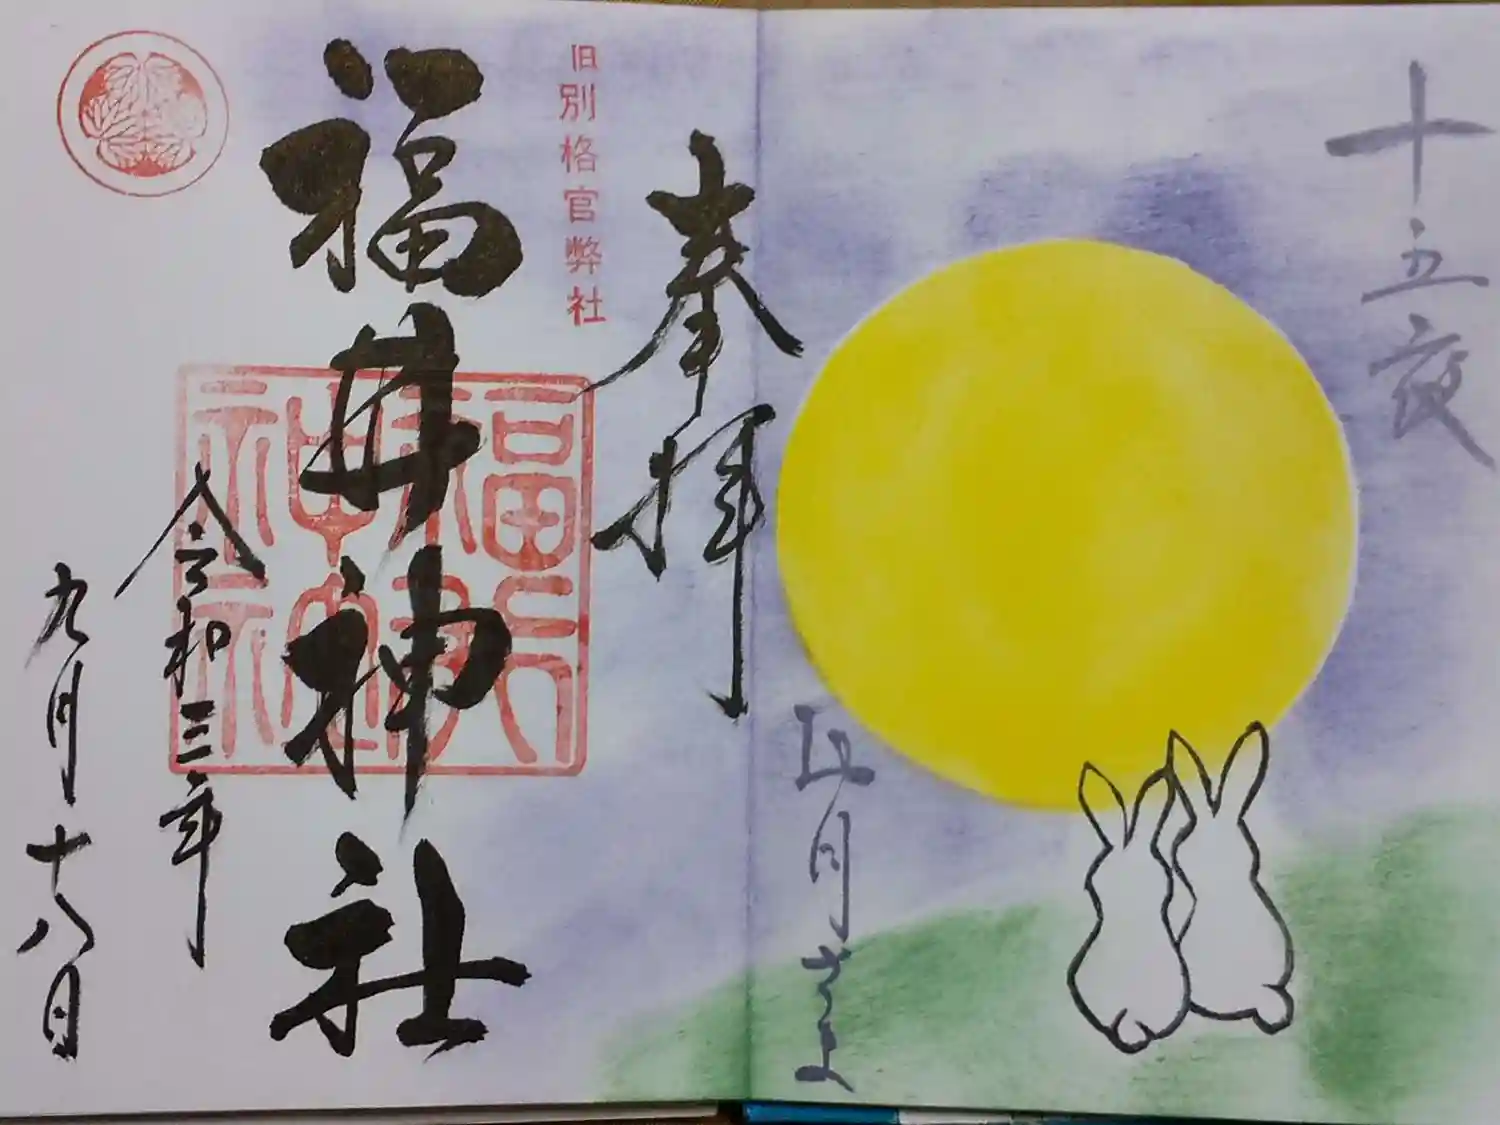 十五夜
月さま
奉拝
旧別格官弊社
福井神社
令和三年
九月十八日